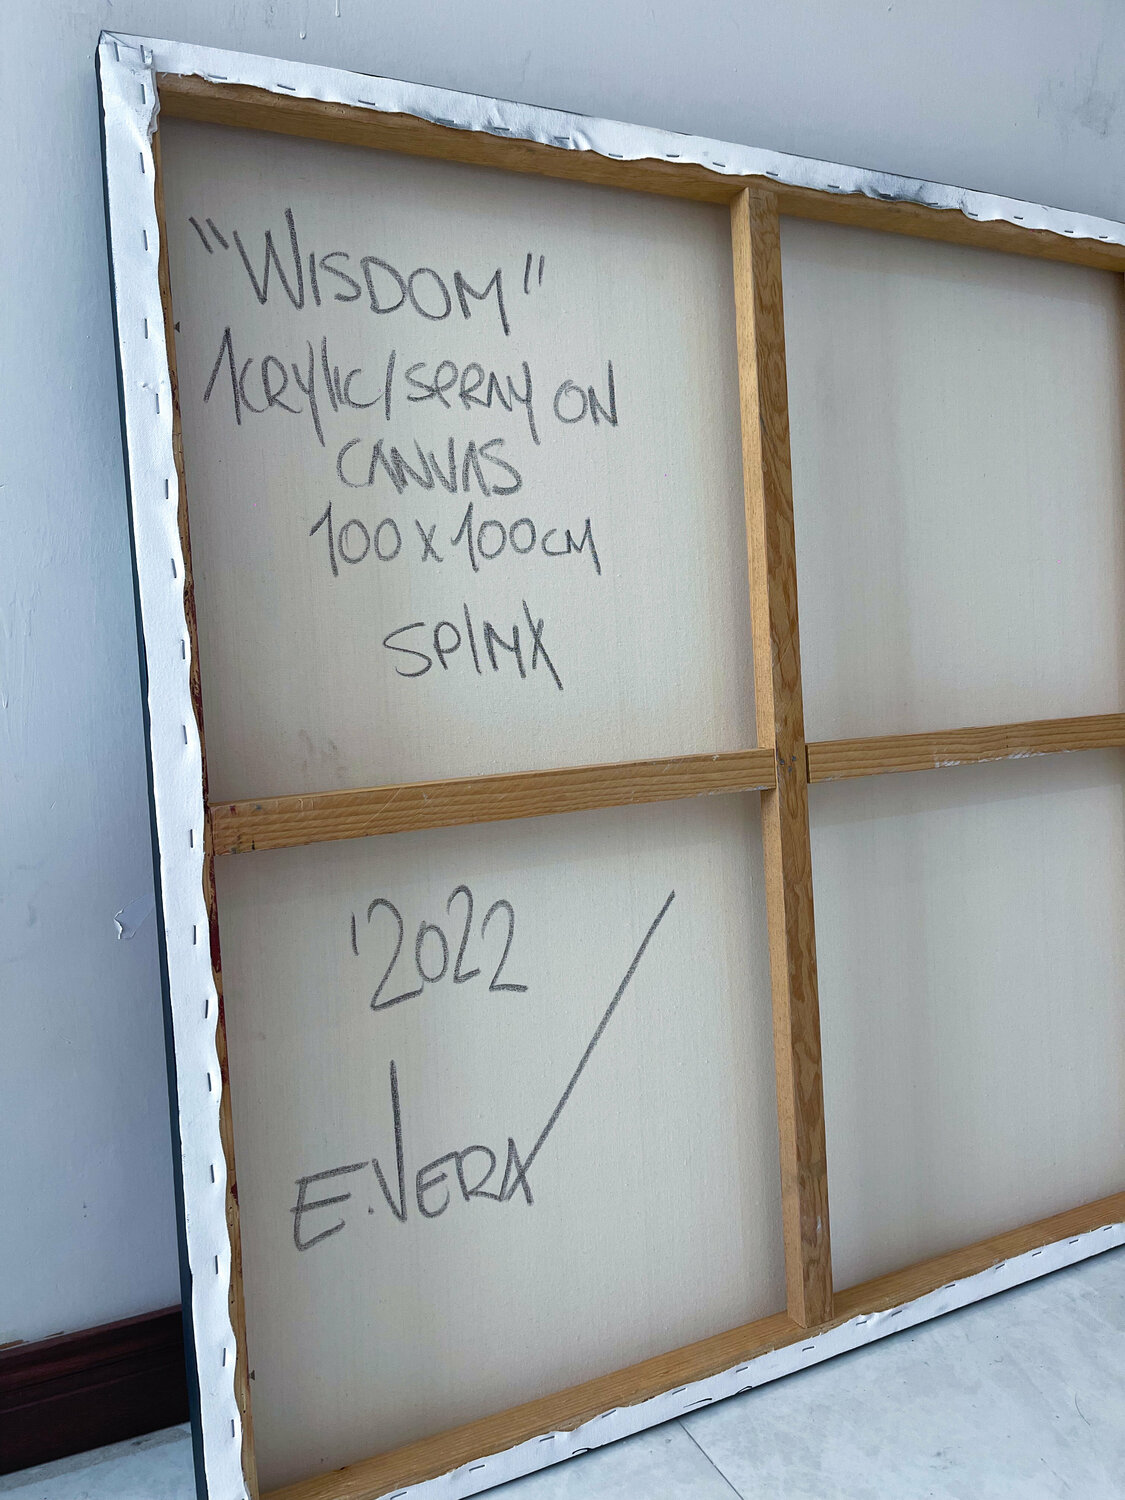 "WISDOM"
ACRYLIC/SPRAY ON
CANVAS
100 X 100CM
SPINX
'2022
E.VERA